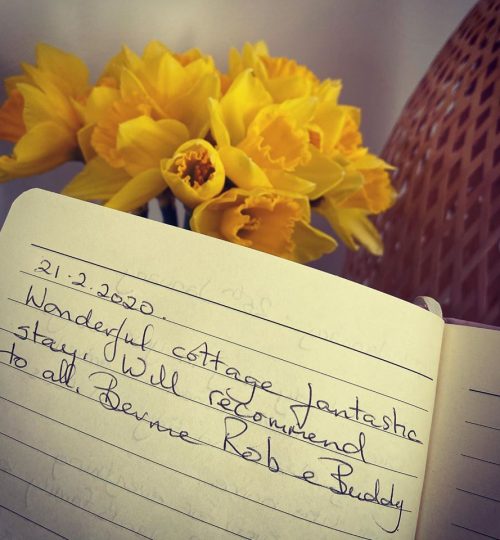 21.2.2020.
Wonderful cottage fantastic
stay. Will recommend
to all. Bernie Rob e Buddy